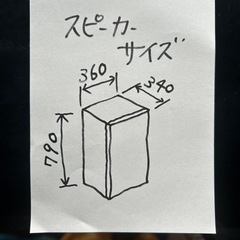 スピーカー
サイズ
360
340
790